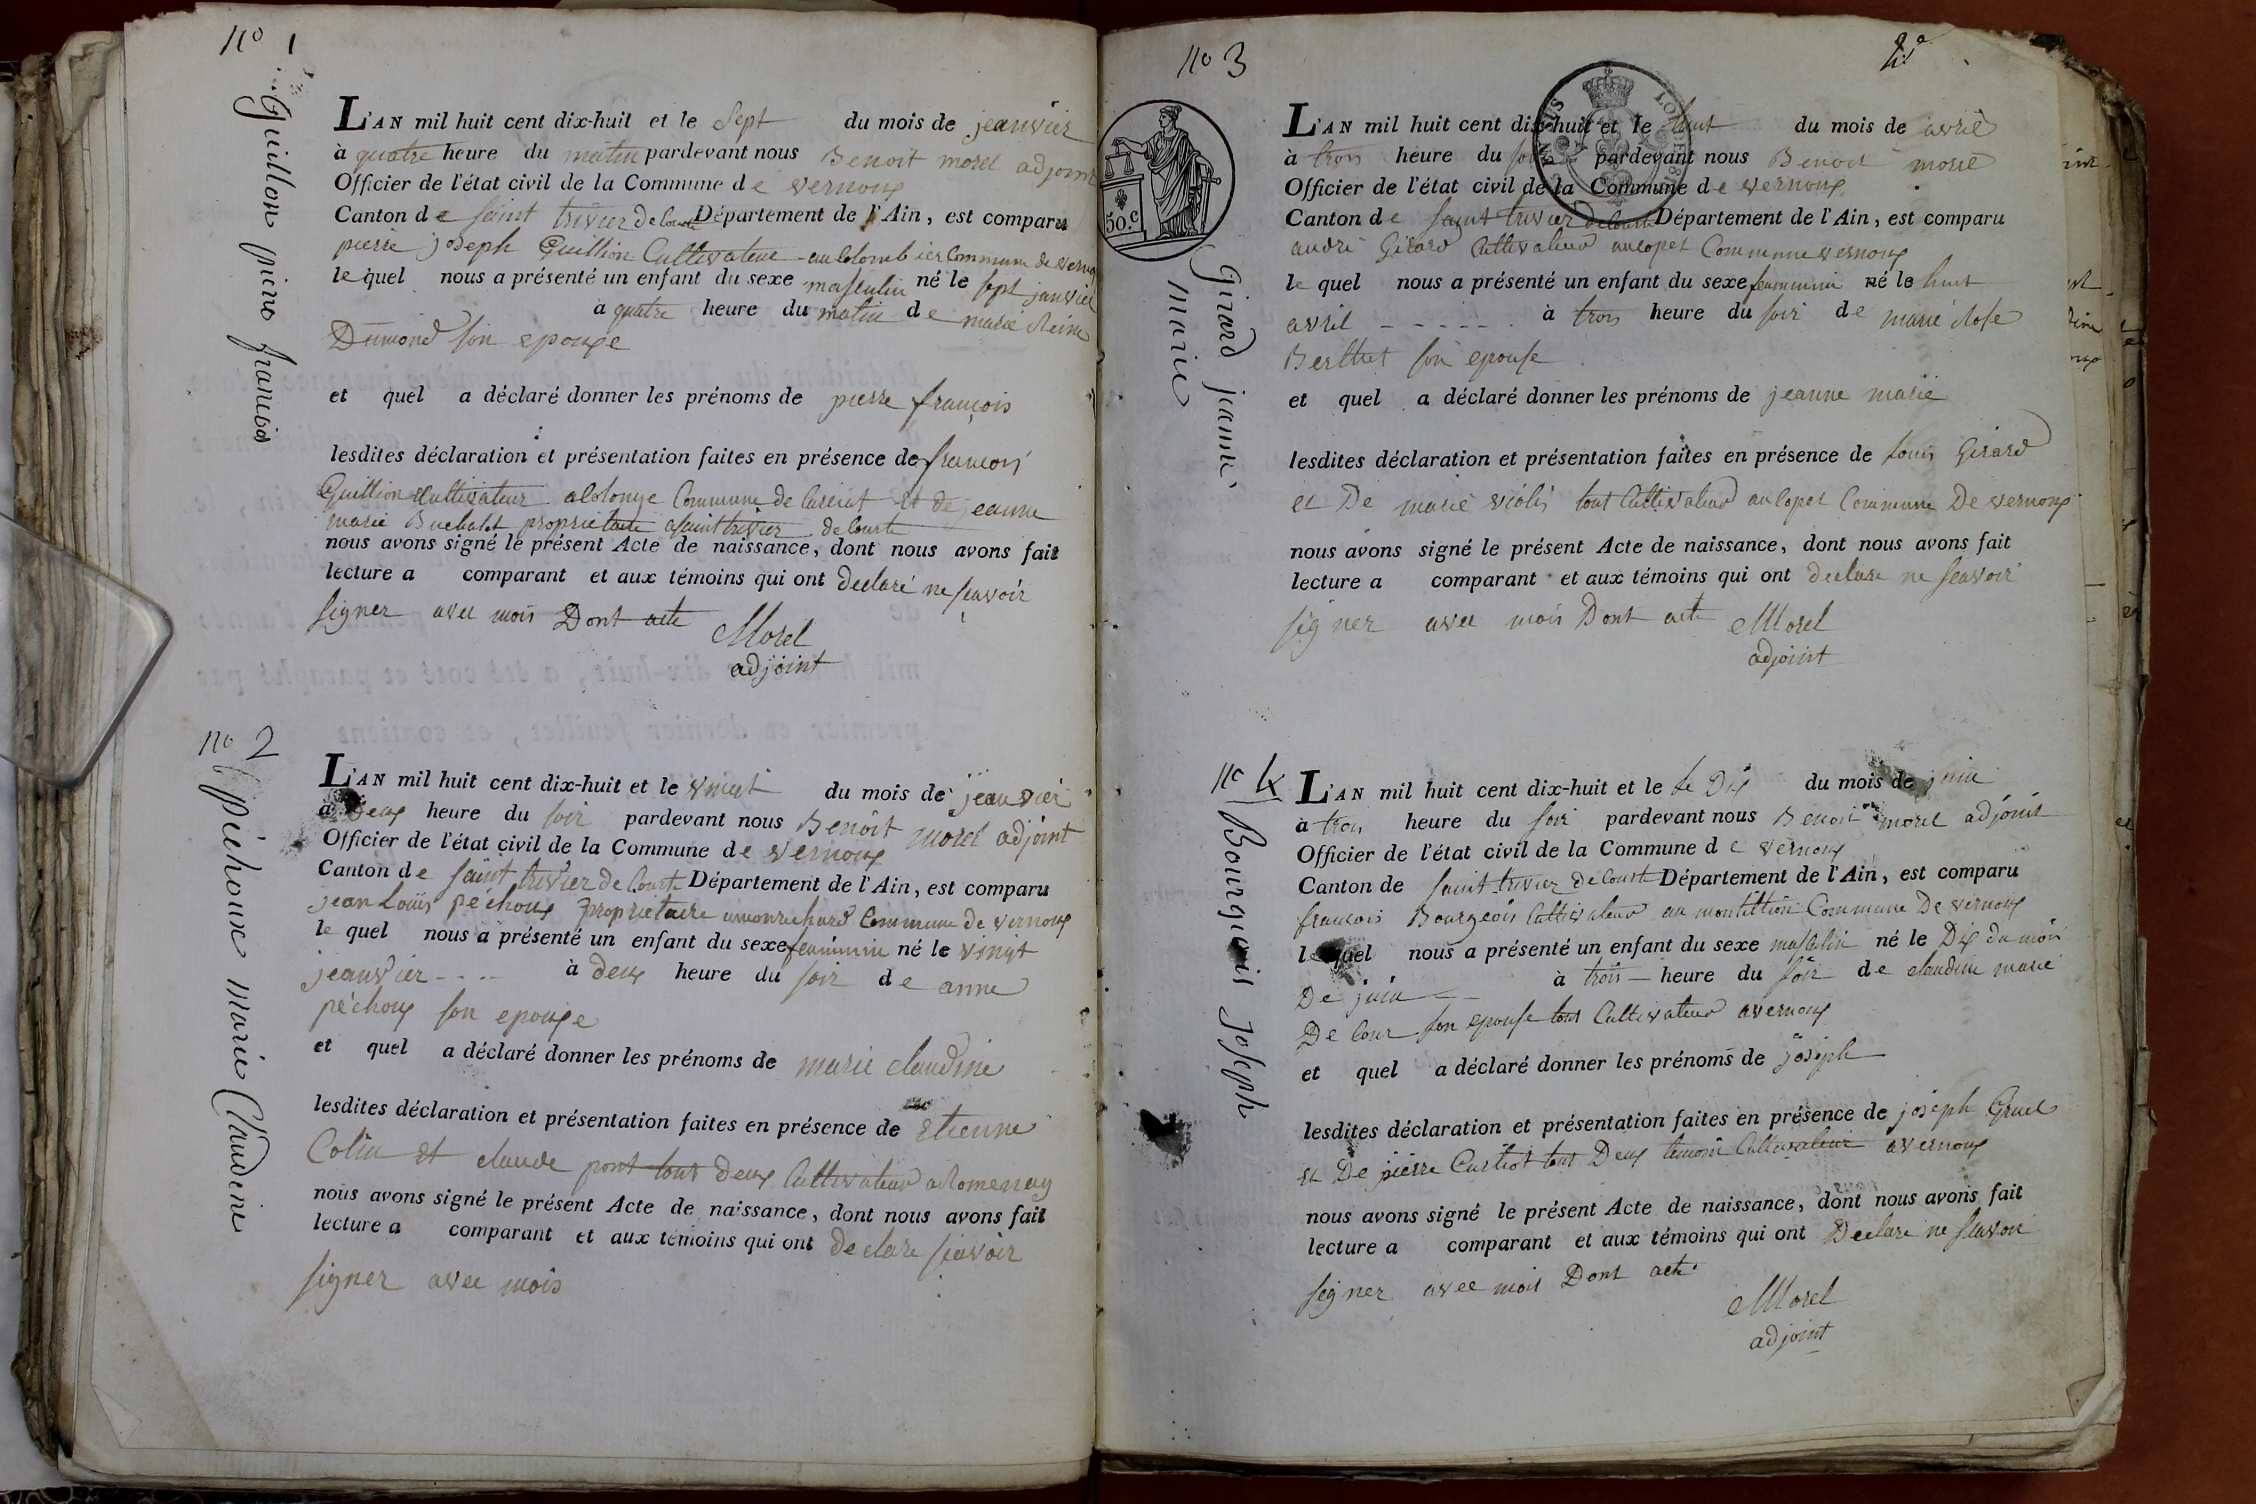 no 1
Guillon pierre francois
L'AN mil huit cent dix-huit et le Sept du mois de jeanvier
à quatre heure du matin pardevant nous Benoit morel adjoint
Officier de l'état civil de la Commune de vernoux
Canton de saint trivier de Courte Département de l'Ain, est comparu
pierre joseph Guillion Cultivateur au Colombier Commune de vernoux
le quel nous a présenté un enfant du sexe masculin né le sept janvier
à quatre heure du matin de marie Reine
Dumond son epouse
et quel a déclaré donner les prénoms de pierre francois
lesdites déclaration et présentation faites en présence de francois
Guillion Cultivateur Commune de Curciat et de jeanne
marie proprietaire a saint trivier de Courte
nous avons signé le présent Acte de naissance, dont nous avons fait
lecture a comparant et aux témoins qui ont declaré ne scavoir
signer avec mois Dont acte
Morel
adjoint
no 2
péchoux marie Claudine
L'AN mil huit cent dix-huit et le vingt du mois de jeanvier
à Deux heure du soir pardevant nous Benoit morel adjoint
Officier de l'état civil de la Commune de vernoux
Canton de saint trivier de Courte Département de l'Ain, est comparu
jean Louis péchoux proprietaire Commune de vernoux
le quel nous a présenté un enfant du sexe feminin né le vingt
jeanvier - - - - à deux heure du soir de anne
péchoux son epouse
et quel a déclaré donner les prénoms de marie claudine
lesdites déclaration et présentation faites en présence de Etienne
Colin et claude pont tout deux Cultivateur a Romenay
nous avons signé le présent Acte de naissance, dont nous avons fait
lecture a comparant et aux témoins qui ont declare scavoir
signer avec mois
no 3
Girard jeanne
marie
50.c
L'AN mil huit cent dix-huit et le huit du mois de avril
à trois heure du soir pardevant nous Benoit morel
Officier de l'état civil de la Commune de vernoux
Canton de saint trivier de Courte Département de l'Ain, est comparu
andré Girard Cultivateur au Copet Commune vernoux
le quel nous a présenté un enfant du sexe feminin né le huit
avril - - - - - - à trois heure du soir de marie Rose
Berthet son epouse
et quel a déclaré donner les prénoms de jeanne marie
lesdites déclaration et présentation faites en présence de Louis Girard
et De marie violi tout Cultivateur au Copet Commune De vernoux
nous avons signé le présent Acte de naissance, dont nous avons fait
lecture a comparant et aux témoins qui ont declare ne scavoir
signer avec mois Dont acte
Morel
adjoint
no 4
Bourgeois Joseph
L'AN mil huit cent dix-huit et le Le Dix du mois de juin
à trois heure du soir pardevant nous Benoit morel adjoint
Officier de l'état civil de la Commune de vernoux
Canton de saint trivier de Courte Département de l'Ain, est comparu
francois Bourgeois Cultivateur au Commune De vernoux
le quel nous a présenté un enfant du sexe masculin né le Dix du mois
De juin à trois heure du soir de claudine marie
De Cour son epouse tout Cultivateur a vernoux
et quel a déclaré donner les prénoms de joseph
lesdites déclaration et présentation faites en présence de joseph Gruel
et De pierre Curtiot tout Deux temoin Cultivateur a vernoux
nous avons signé le présent Acte de naissance, dont nous avons fait
lecture a comparant et aux témoins qui ont Declare ne scavoir
signer avec mois Dont acte
Morel
adjoint